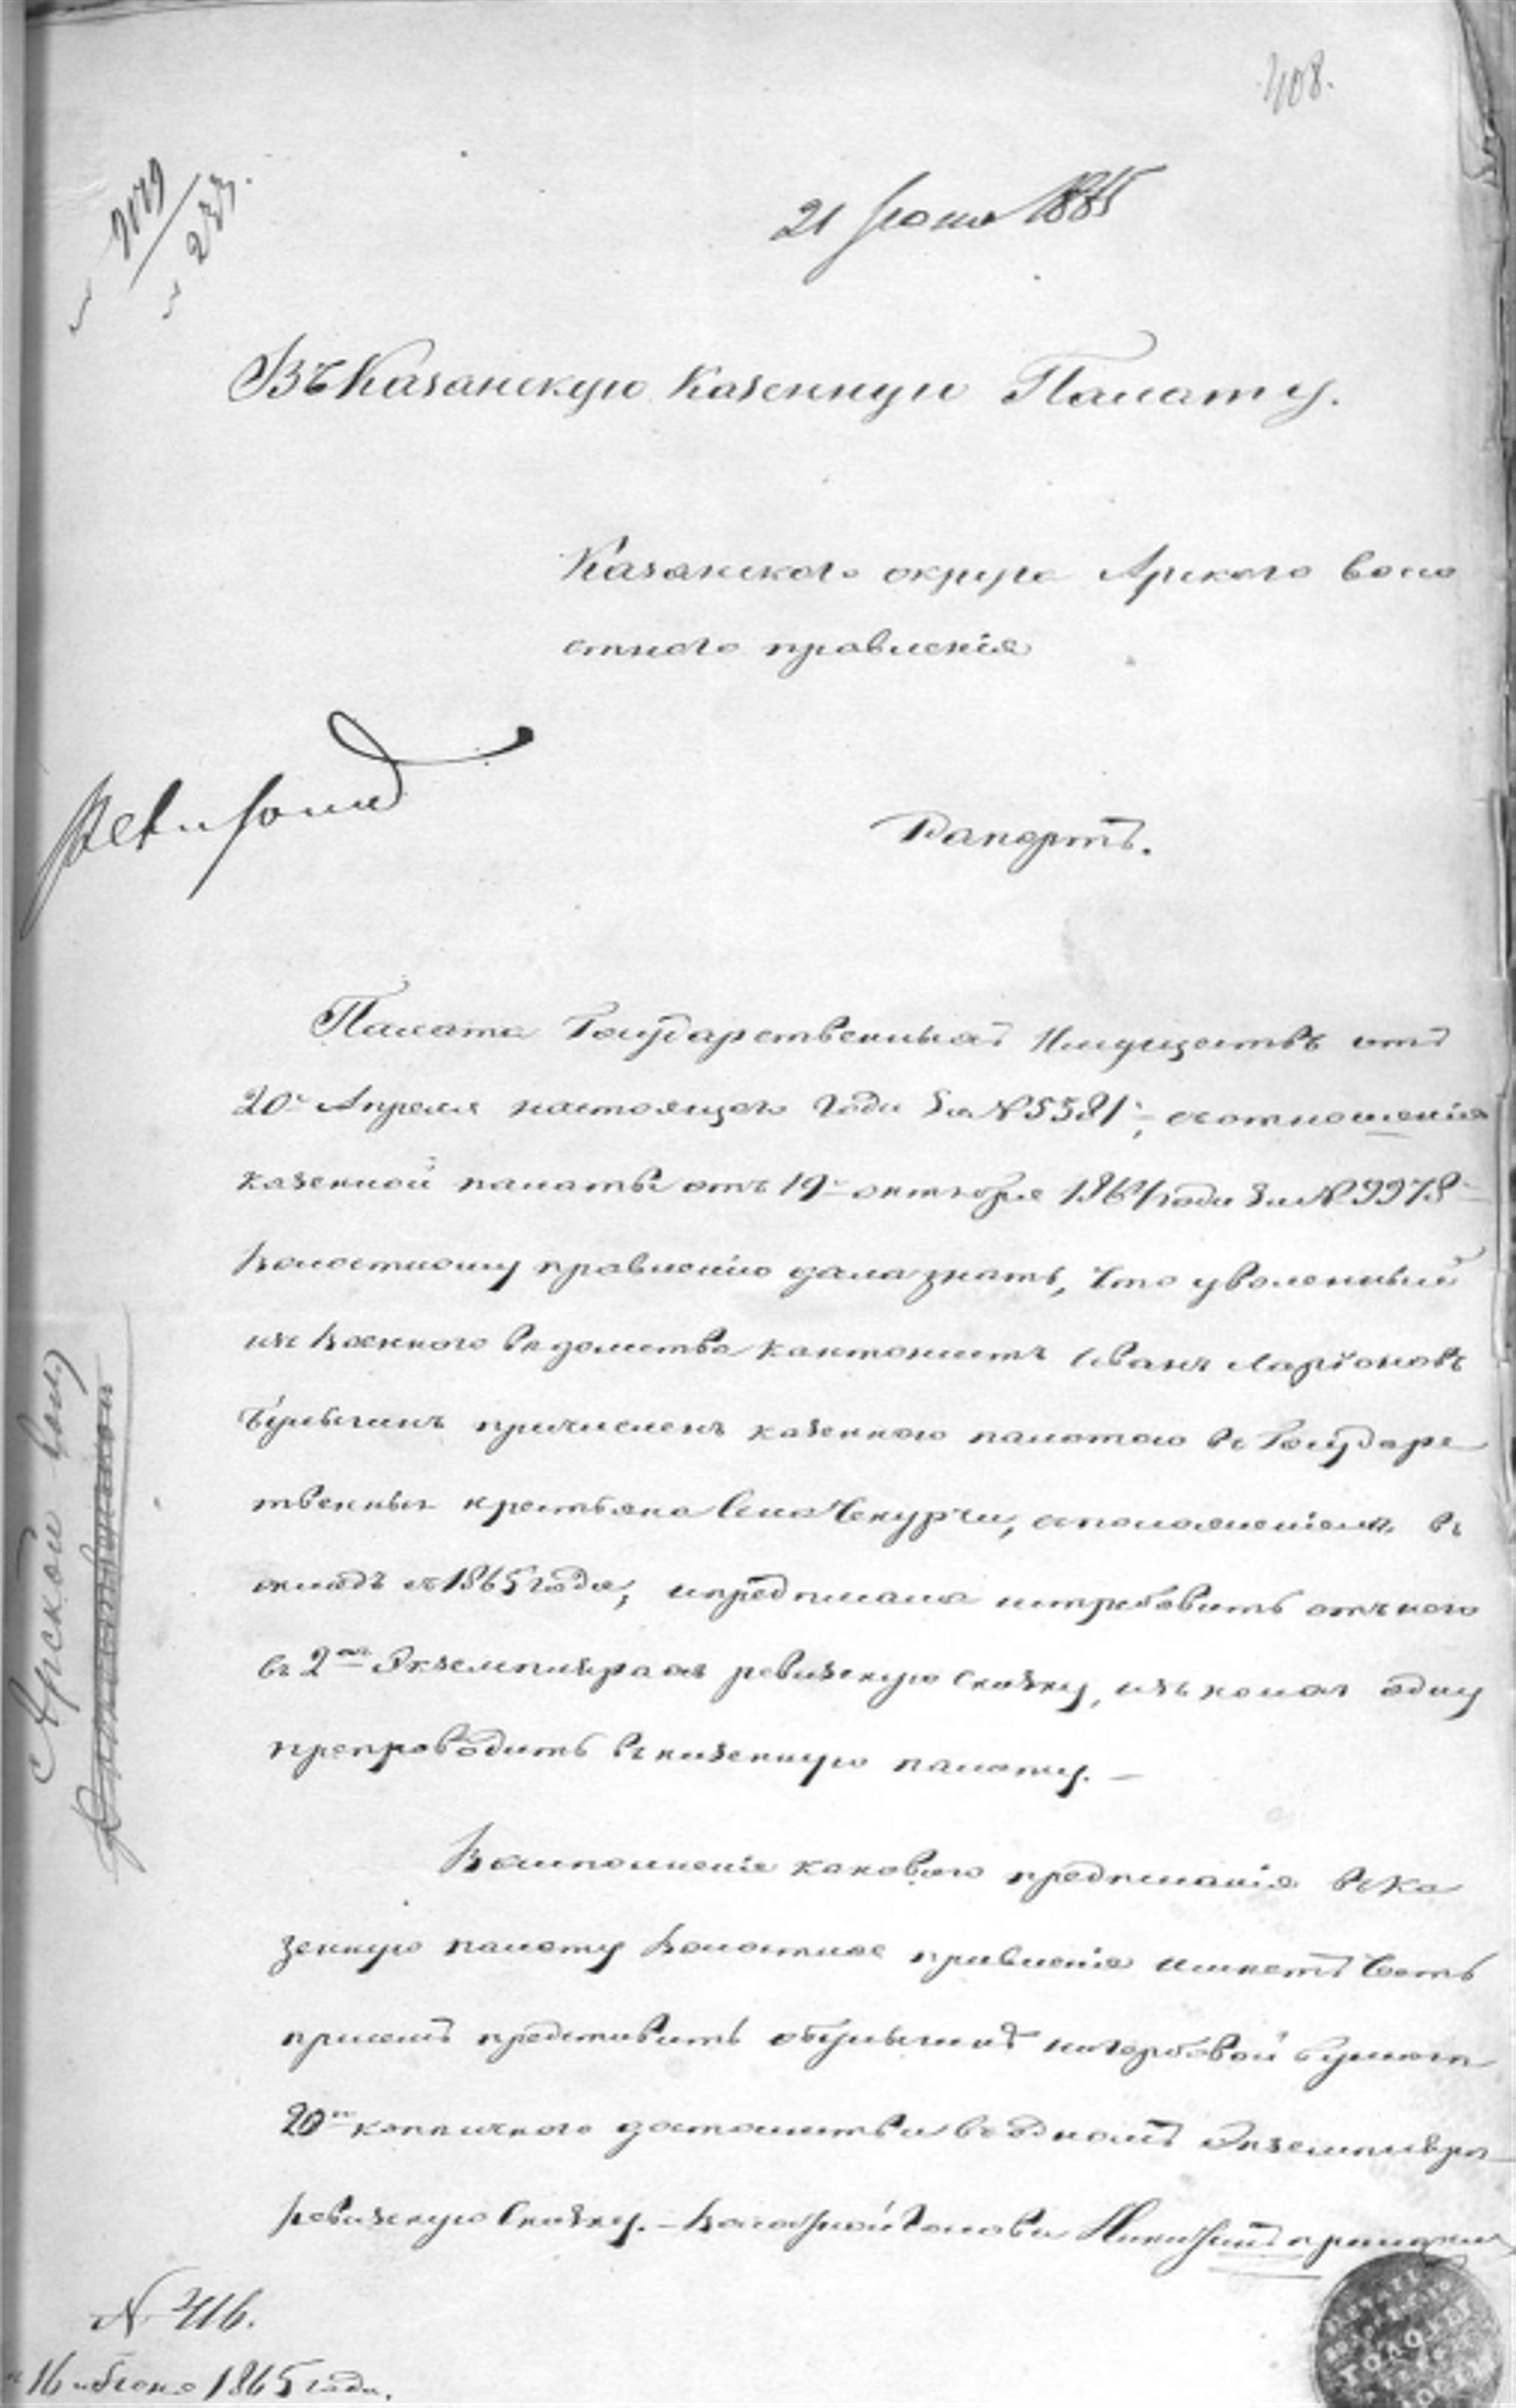 408.
21 Июня 1865
Въ Казанскую Казенную Палату.
Казанского округа Арского воло
стного правленія
Рапортъ.
Палата Государственныхъ Имуществъ отъ
20 Апреля настоящаго года за № 5581, отношенія
казенной палаты отъ 19 октября 1864 года за № 9978
волостному правленію дала знать, что уволенный
изъ Военного ведомства кантонистъ Иванъ Ларіоновъ
Булыгинъ причисленъ казенною палатою въ Государс
твенныя крестьяна Села Чекурчи, сположеніемъ въ
окладъ съ 1865 года, и предписала истребовать отъ него
въ 2хъ Экземплярахъ ревизскую Сказку, изъ коихъ одну
препроводить въ казенную палату. —
Во исполненіе каковаго предписанія въ Ка
зенную палату Волостное правленіе имѣетъ честь
при семъ представить о Булыгинѣ на гербовой бумаге
20ти копеечного достоинства въ одномъ Экземпляре
ревизскую Сказку. — Волостной Голова
Арской вол
№ 416.
16 Июня 1865 года.